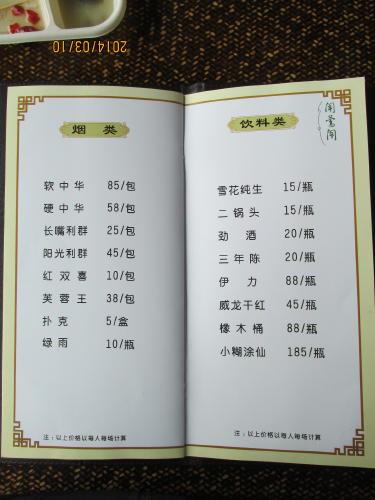 2014/03/10
烟 类
软中华 85/包
硬中华 58/包
长嘴利群 25/包
阳光利群 45/包
红双喜 10/包
芙蓉王 38/包
扑克 5/盒
绿雨 10/瓶
注：以上价格以每人每场计算
饮料类
闻莺阁
雪花纯生 15/瓶
二锅头 15/瓶
劲酒 20/瓶
三年陈 20/瓶
伊力 88/瓶
威龙干红 45/瓶
橡木桶 88/瓶
小糊涂仙 185/瓶
注：以上价格以每人每场计算